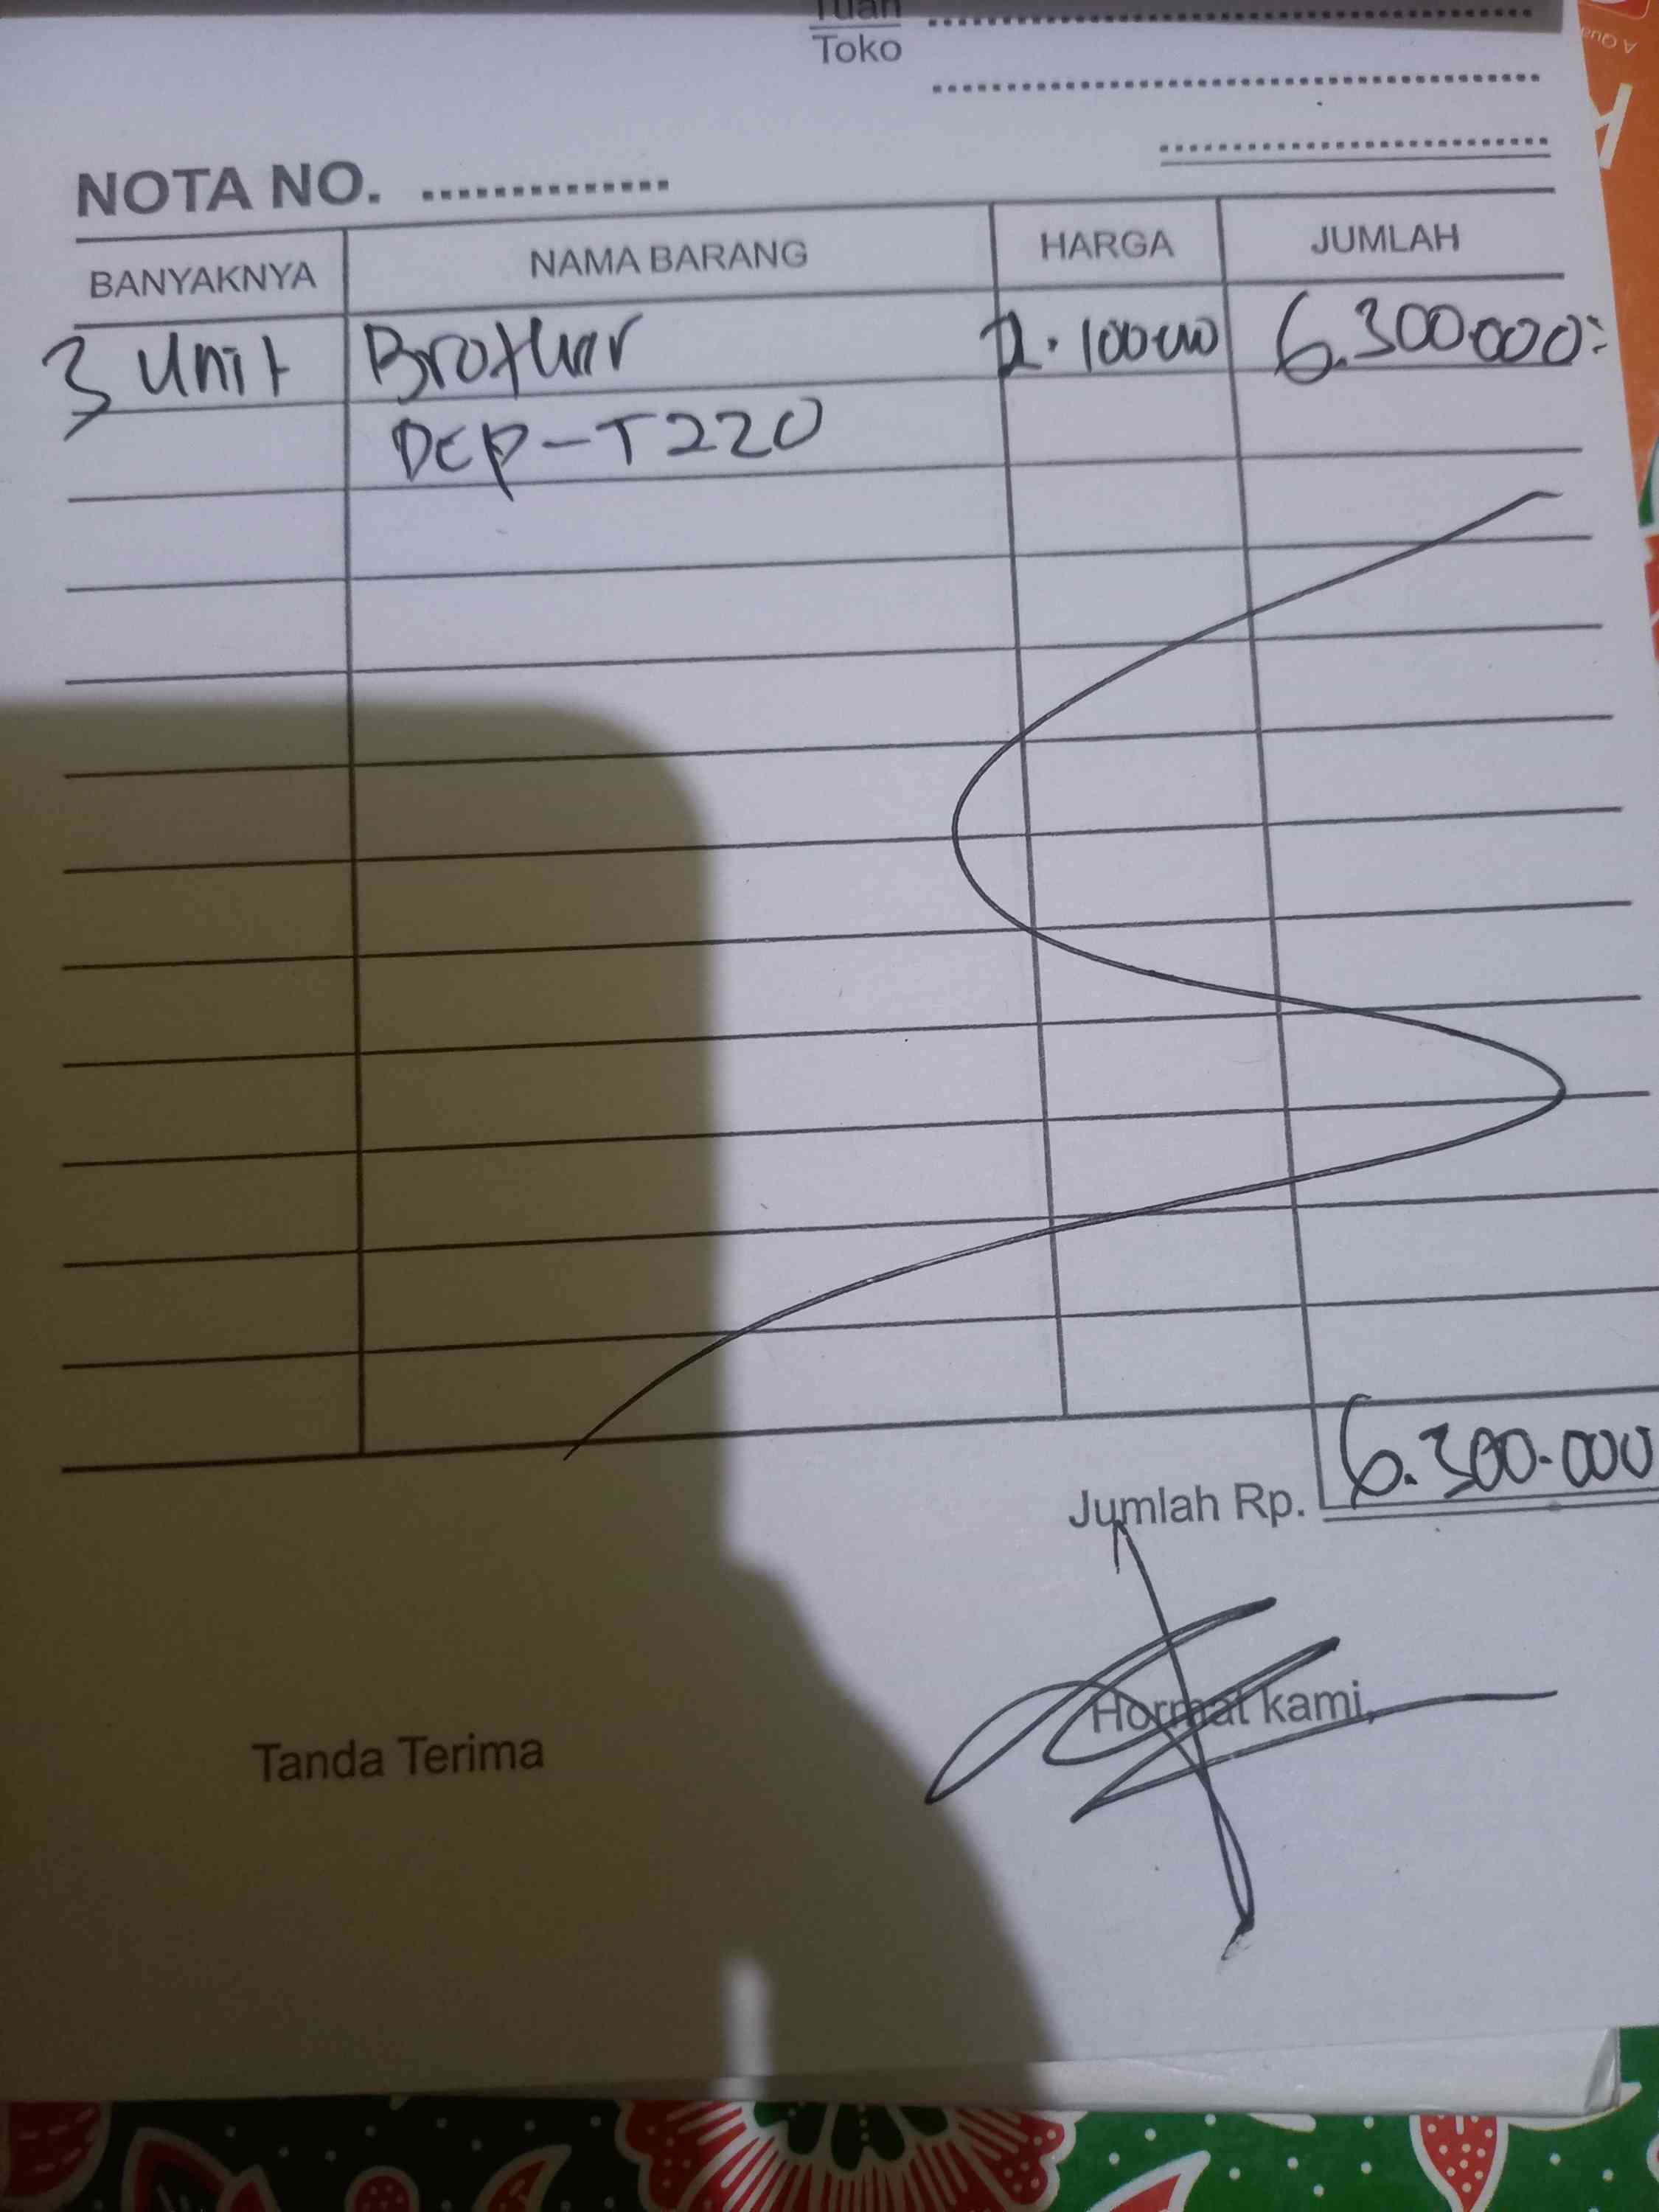 Tuan
Toko
NOTA NO.
BANYAKNYA NAMA BARANG HARGA JUMLAH
3 Unit Brother 2.100000 6.300.000:
DCP-T220
Jumlah Rp. 6.300.000
Hormat kami,
Tanda Terima
A Qua